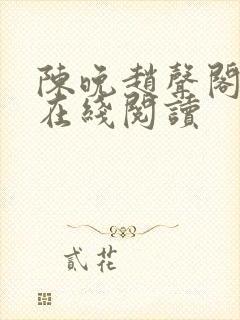 陳晚趙聲閣
在綫閱讀
貳花